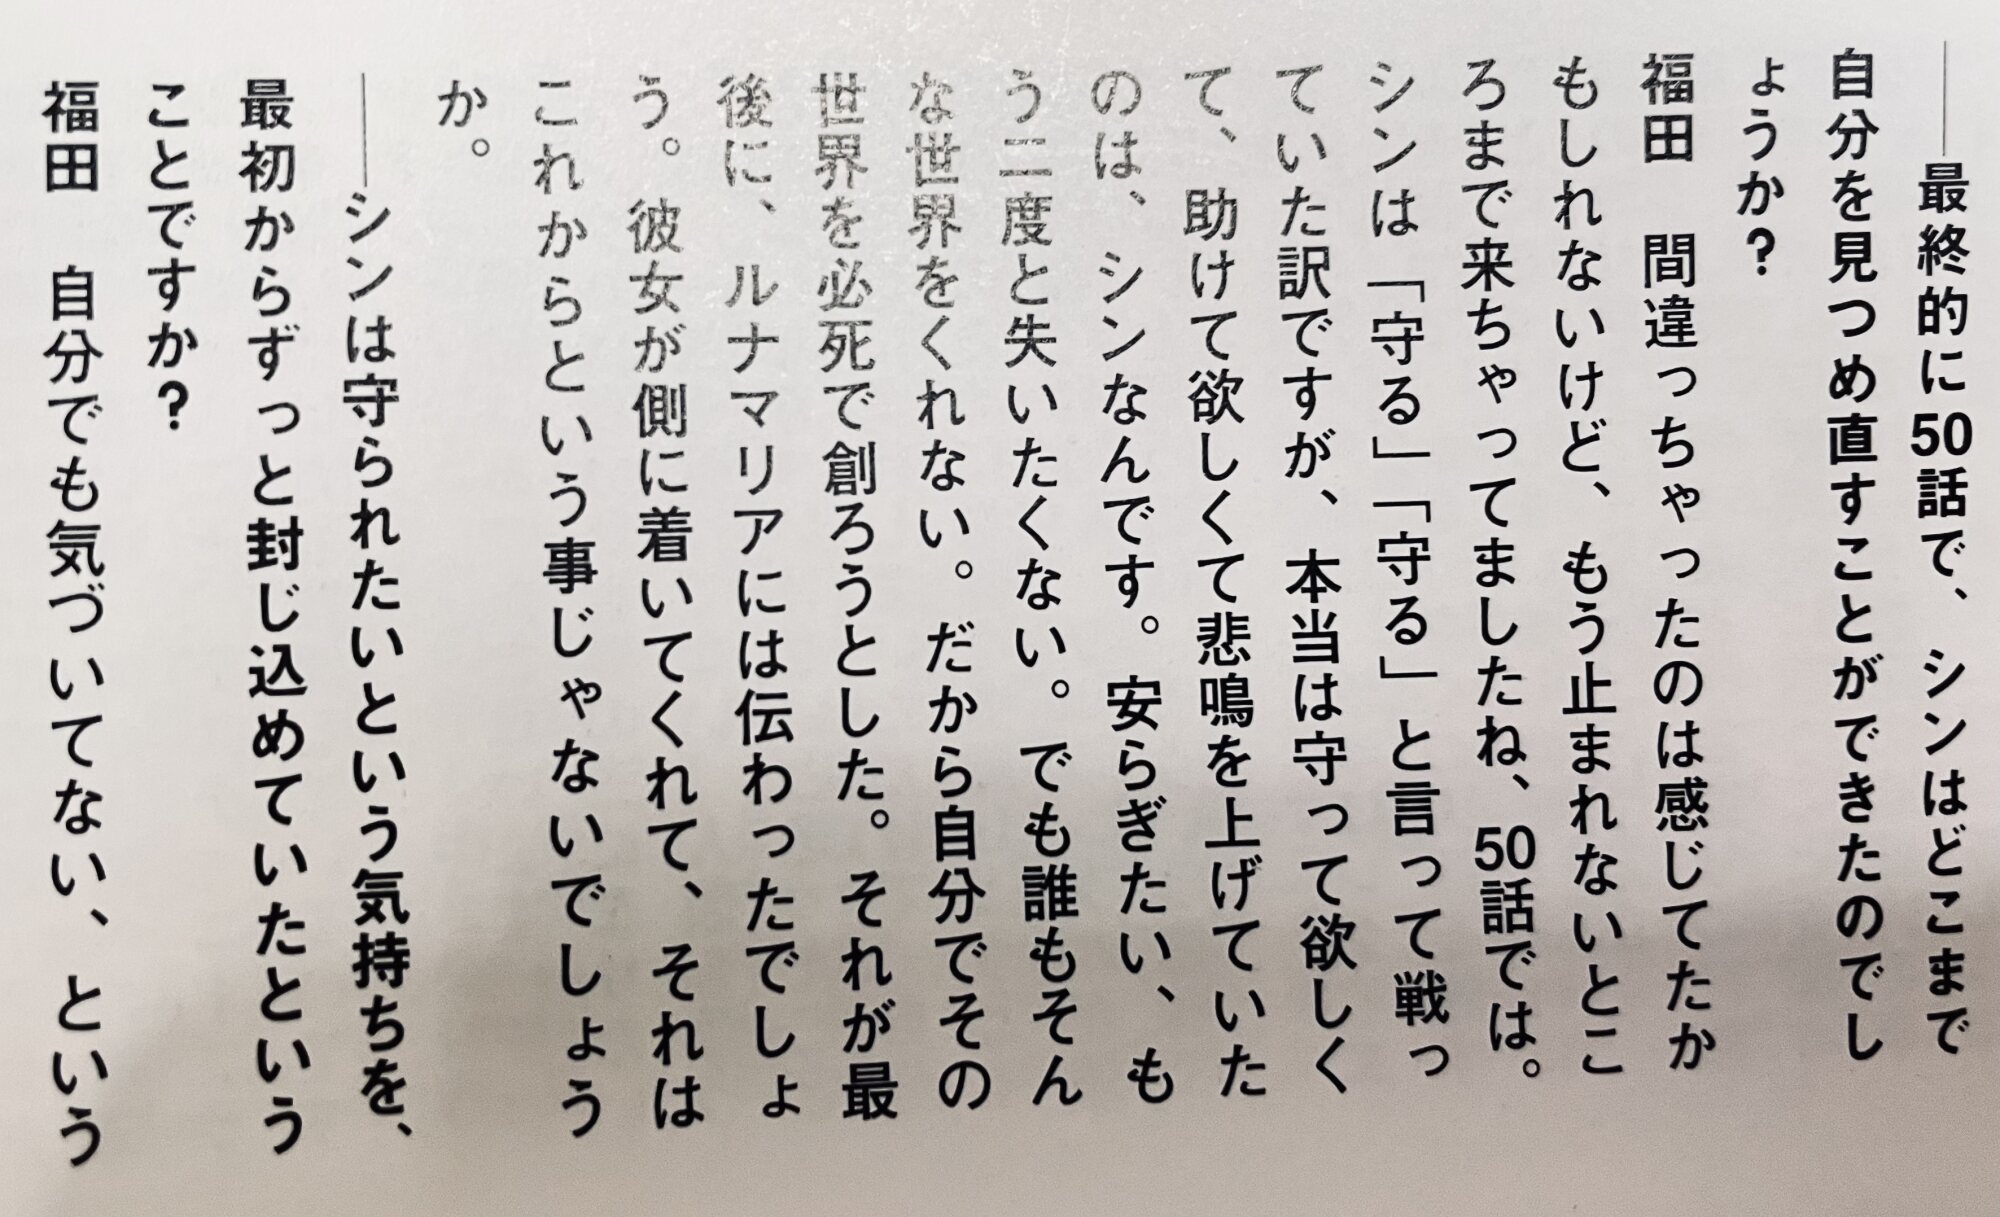 ――最終的に50話で、シンはどこまで
自分を見つめ直すことができたのでし
ょうか?
福田　間違っちゃったのは感じてたか
もしれないけど、もう止まれないとこ
ろまで来ちゃってましたね、50話では。
シンは「守る」「守る」と言って戦っ
ていた訳ですが、本当は守って欲しく
て、助けて欲しくて悲鳴を上げていた
のは、シンなんです。安らぎたい、も
う二度と失いたくない。でも誰もそん
な世界をくれない。だから自分でその
世界を必死で創ろうとした。それが最
後に、ルナマリアには伝わったでしょ
う。彼女が側に着いてくれて、それは
これからという事じゃないでしょう
か。
――シンは守られたいという気持ちを、
最初からずっと封じ込めていたという
ことですか?
福田　自分でも気づいてない、という